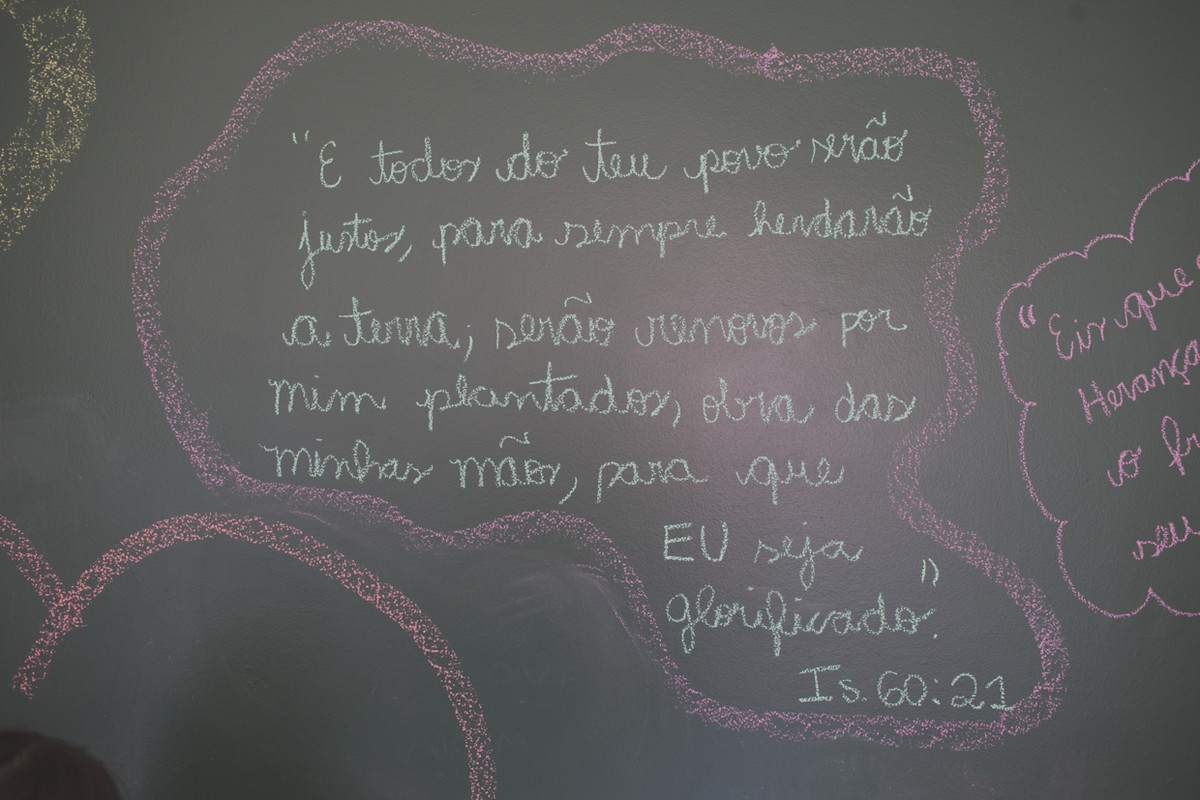 "E todos do teu povo serão
justos, para sempre herdarão
a terra; serão renovos por
mim plantados, obra das
minhas mãos, para que
EU seja
glorificado."
Is. 60:21
"Eis que
Herança
o
seu